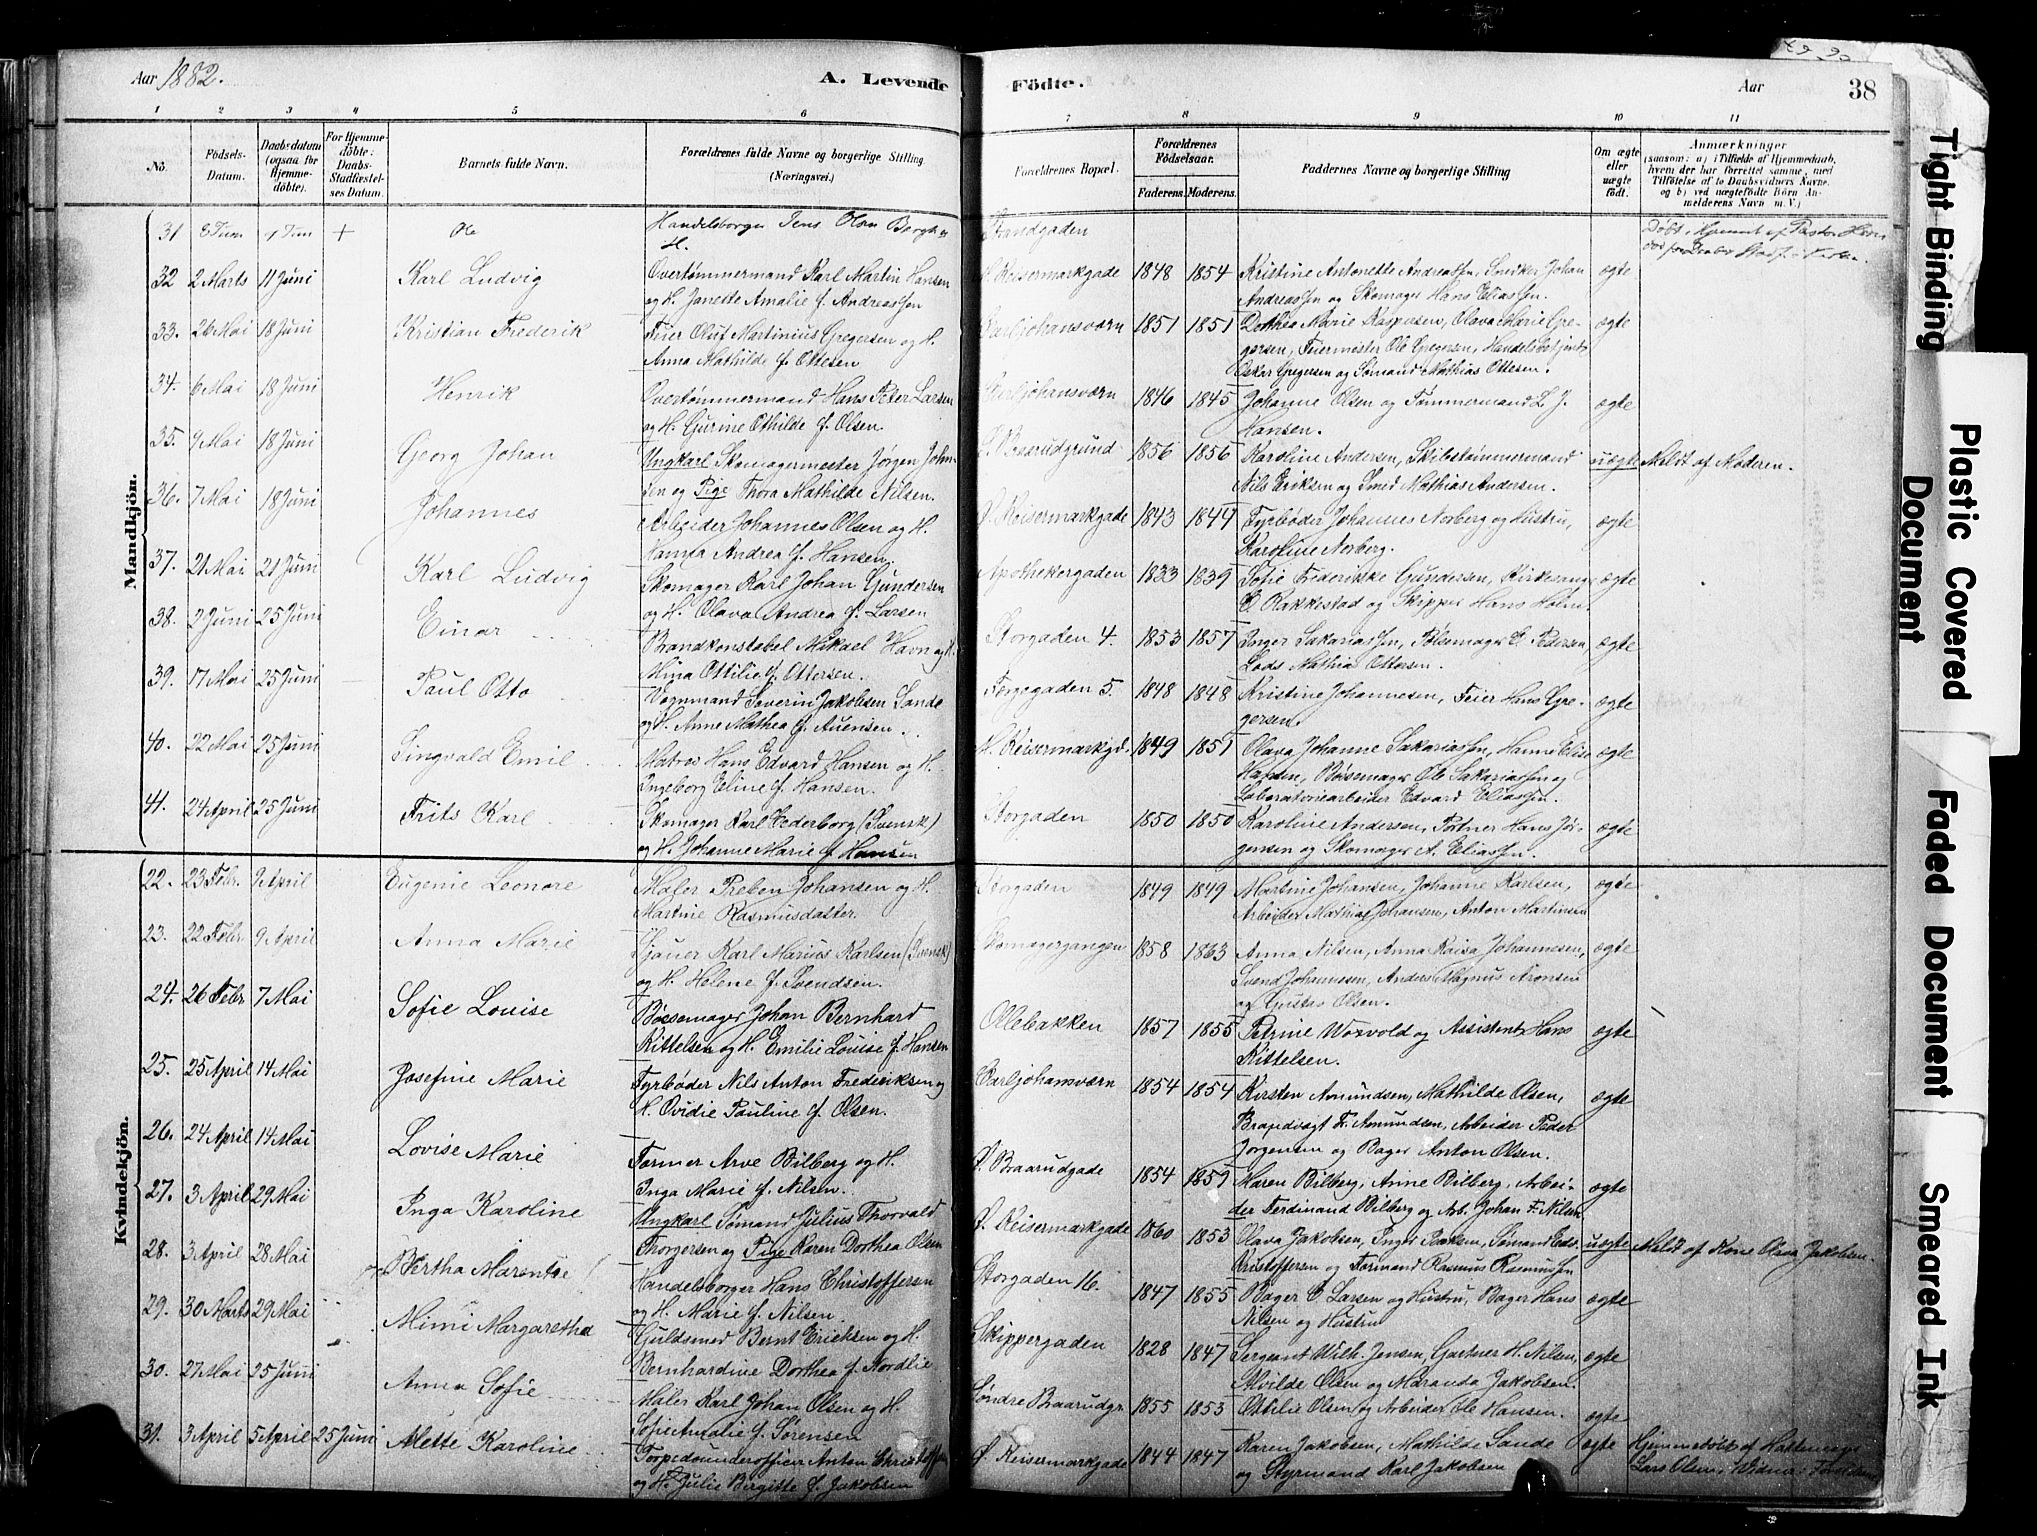 Aar 1882.
A. Levende Födte.
Aar
38
1 2 3 4 5 6 7 8 9 10 11
No.
Födsels-Datum.
Daabsdatum (ogsaa for Hjemmedöbte).
For Hjemmedöbte: Daabs-Stadfæstelses Datum.
Barnets fulde Navn.
Forældrenes fulde Navne og borgerlige Stilling (Næringsvei.)
Forældrenes Bopæl.
Forældrenes Födselsaar.
Faderens Moderens.
Faddernes Navne og borgerlige Stilling
Om ægte eller uægte födt.
Anmærkninger
(saasom: a) i Tilfælde af Hjemmedaab, hvem der har forrettet samme, med Tilföielse af to Daabsvidners Navne, og b) ved uægtefödte Börn Anmelderens Navn m. V.)
Mandkjön.
31 8 Juni + Ole Handelsborger Jens Olsen H. Strandgaden
32 2 Marts 11 Juni Karl Ludvig Overtømmermand Karl Martin Hansen N. Keisermarkgade 1848 1854 Kristine Antonette Andreassen, Snedker Johan ægte
og H. Janette Amalie f. Andreassen Andreassen og Skomager Hans Eliassen.
33. 26 Mai 18 Juni Kristian Frederik Feier Oluf Martinius Gregersen og H. Karljohansværn 1851 1851 Dorthea Marie Kaspersen, Olava Marie Gre- ægte
Anna Mathilde f. Ottesen gersen, Feiermester Ole Gregersen, Handelsbetjent
Oskar Gregersen og Sømand Mathias Ottesen.
34. 6 Mai 18 Juni Henrik Overtømmermand Hans Peter Larsen Karljohansværn 1846 1845 Johanne Olsen og Tømmermand L. J. ægte
og H. Gurine Othilde f. Olsen. Hansen.
35. 9 Mai 18 Juni Georg Johan Ungkarl Skomagermester Jørgen John- 1856 1856 Karoline Andersen, Skibstømmermand uægte Meldt af Moderen.
sen og Pige Thora Mathilde Nilsen. Nils Eriksen og Smed Mathias Andersen.
36. 7 Mai 18 Juni Johannes Arbeider Johannes Olsen og H. Ø. Keisermarkgade 1843 1844 Fyrbøder Johannes Norberg og Hustru, ægte
Hanna Andrea f. Hansen Karoline Norberg.
37. 21 Mai 21 Juni Karl Ludvig Skomager Karl Johan Gundersen Apothekergaden 1833 1839 Sofie Frederikke Gundersen, Kirkesanger ægte
og H. Olava Andrea f. Larsen E. Rakkestad og Skipper Hans Holm.
38. 2 Juni 25 Juni Einar Brandkonstabel Mikael Havn og H. Storgaden 4. 1853 1857 Inger Sakariassen, Pølsemager E. Pedersen ægte
Mina Ottilie f. Ottersen. Lods Mathias Ottersen.
39. 17 Mai 25 Juni Paul Otto Vognmand Severin Jakobsen Sande Torvegaden 5. 1848 1848 Kristine Johannesen, Feier Hans Gre- ægte
og H. Anne Mathea f. Auensen. gersen.
40. 22 Mai 25 Juni Singvald Emil Matros Hans Edvard Hansen og H. N. Keisermarkgd. 1849 1851 Olava Johanne Sakariassen, Hanne Elise ægte
Ingeborg Eline f. Hansen. Hansen, Bøssemager Ole Sakariassen og
Laboratoriearbeider Edvard Eliassen.
41. 24 April 25 Juni Frits Karl Skomager Karl Cederborg (Svensk) Storgaden 1850 1850 Karoline Andersen, Portner Hans Jør- ægte
og H. Johanne Marie f. Hansen gensen og Skomager A. Eliassen.
Kvindekjön.
22. 23 Febr. 9 April Eugenie Leonore Maler Preben Johansen og H. Storgaden 1849 1849 Martine Johansen, Johanne Karlsen, ægte
Martine Rasmusdatter. Arbeider Mathias Johansen, Anton Martinsen
23. 22 Febr 9 April Anna Marie Sjauer Karl Marius Karlsen (Svensk) Skomagergangen 1858 1863 Anna Nilsen, Anna Kaisa Johannesen, ægte
og H. Helene f. Svendsen. Svend Johannesen, Anders Magnus Aronsen
og Gustav Olsen.
24. 26 Febr 7 Mai Sofie Louise Bøssemager Johan Bernhard Ollebakken 1857 1855 Petrine Worvold og Assistent Hans ægte
Kittelsen og H. Emilie Louise f. Hansen Kittelsen.
25. 25 April 14 Mai Josefine Marie Fyrbøder Nils Anton Frederiksen og Karljohansværn 1854 1854 Kirsten Amundsen, Mathilde Olsen, ægte
H. Ovidie Pauline f. Olsen. Brandvagt Fr. Amundsen, Arbeider Peder
Jørgensen og Bager Anton Olsen.
26. 24 April 14 Mai Lovise Marie Former Arve Bilberg og H. Ø. Braarudgade 1854 1859 Maren Bilberg, Anne Bilberg, Arbei- ægte
Inga Marie f. Nilsen. der Ferdinand Bilberg og Arb. Johan F. Nilsen
27. 3 April 29 Mai Inga Karoline Ungkarl Sømand Julius Thorvald Ø. Keisermarkgade 1860 1853 Olava Jakobsen, Inger Isaksen, Sømand Edv. uægte Meldt af Kone Olava Jakobsen.
Thorgersen og Pige Karen Dorthea Olsen Kristoffersen og Formand Rasmus Rasmussen
28. 3 April 28 Mai Bertha Marentse Handelsborger Hans Christoffersen Storgaden 16. 1847 1855 Bager C Larsen og Hustru, Bager Hans ægte
og H. Marie f. Nilsen. Nilsen og Hustru
29. 30 Marts 29 Mai Mimi Margaretha Guldsmed Bernt Eriksen og H. Skippergaden 1828 1847 Sergeant Wilh. Jensen, Gartner H. Nilsen, ægte
Bernhardine Dorthea f. Nordlie Alvilde Olsen og Maranda Jakobsen.
30. 27 Mai 25 Juni Anna Sofie Maler Karl Johan Olsen og H. Søndre Braarudgr. 1855 1853 Ottilie Olsen og Arbeider Ole Hansen. ægte
Sofie Amalie f. Sørensen
31. 3 April 5 April 25 Juni Alette Karoline Torpedounderofficer Anton Christoffersen Ø. Keisermarkgade 1844 1847 Karen Jakobsen, Mathilde Sande ægte Hjemmedøbt af
og H. Julie Birgitte f. Jakobsen og Styrmand Karl Jakobsen Lars Olsen, Vidner: Forældrene
Tight Binding
Plastic Covered Document
Faded Document
Smeared Ink